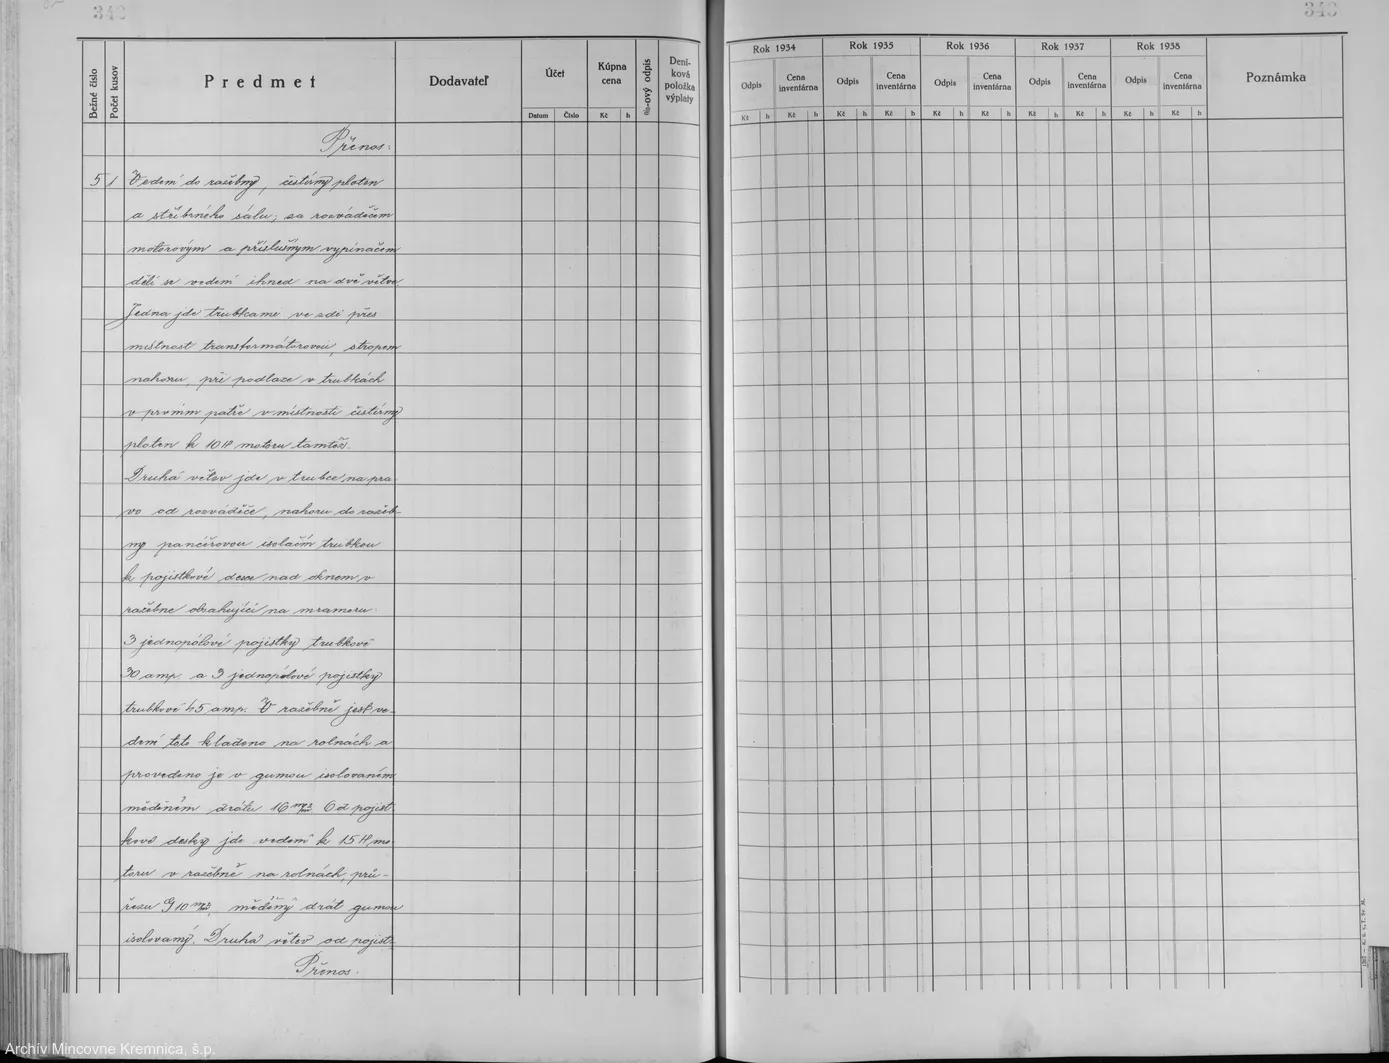 343
343
Bežné číslo
Počet kusov
Predmet
Dodavateľ
Účet
Datum
Číslo
Kúpna cena
Kč h
%-ový odpis
Dení-
ková
položka
výplaty
Rok 1934
Rok 1935
Rok 1936
Rok 1937
Rok 1938
Odpis
Cena inventárna
Odpis
Cena inventárna
Odpis
Cena inventárna
Odpis
Cena inventárna
Odpis
Cena inventárna
Kč h Kč h Kč h Kč h Kč h Kč h Kč h Kč h Kč h Kč h
Poznámka
Přenos:
5 1 Vedení do ražebny, čistírny ploten
a stříbrného sálu; za rozváděčem
motorovým a příslušným vypínačem
dělí se vedení ihned na dvě větve
Jedna jde trubkami ve zdi přes
místnost transformátorovou, stropem
nahoru, při podlaze v trubkách
v prvním patře v místnosti čistírny
ploten k 10 H motoru tamtéž.
Druhá větev jde v trubce na pra-
vo od rozváděče, nahoru do ražeb-
ny pancéřovou isolační trubkou
k pojistkové desce nad oknem v
ražebne obsahující na mramoru:
3 jednopólové pojistky trubkové
30 amp. a 3 jednopólové pojistky
trubkové 45 amp. V ražebně jest ve-
dení toto kladeno na rolnách a
provedeno je v gumou isolovaném
měděném drátu 16 mm2 Od pojist-
kové desky jde vedení k 15 H mo-
toru v ražebně na rolnách, prů-
řezu 10 mm2, měděný drát gumou
isolovaný. Druhá větev od pojist-
Přenos.
Archív Mincovne Kremnica, š.p.